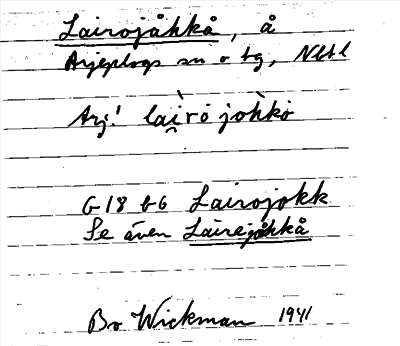 Lairojåhkå, å
Arjeplogs sn o tg, Nbtl
Arj! lai̯ròjohkò
G 18 b6 Lairojokk
Se även Lairejåhkå
Bo Wickman 1941